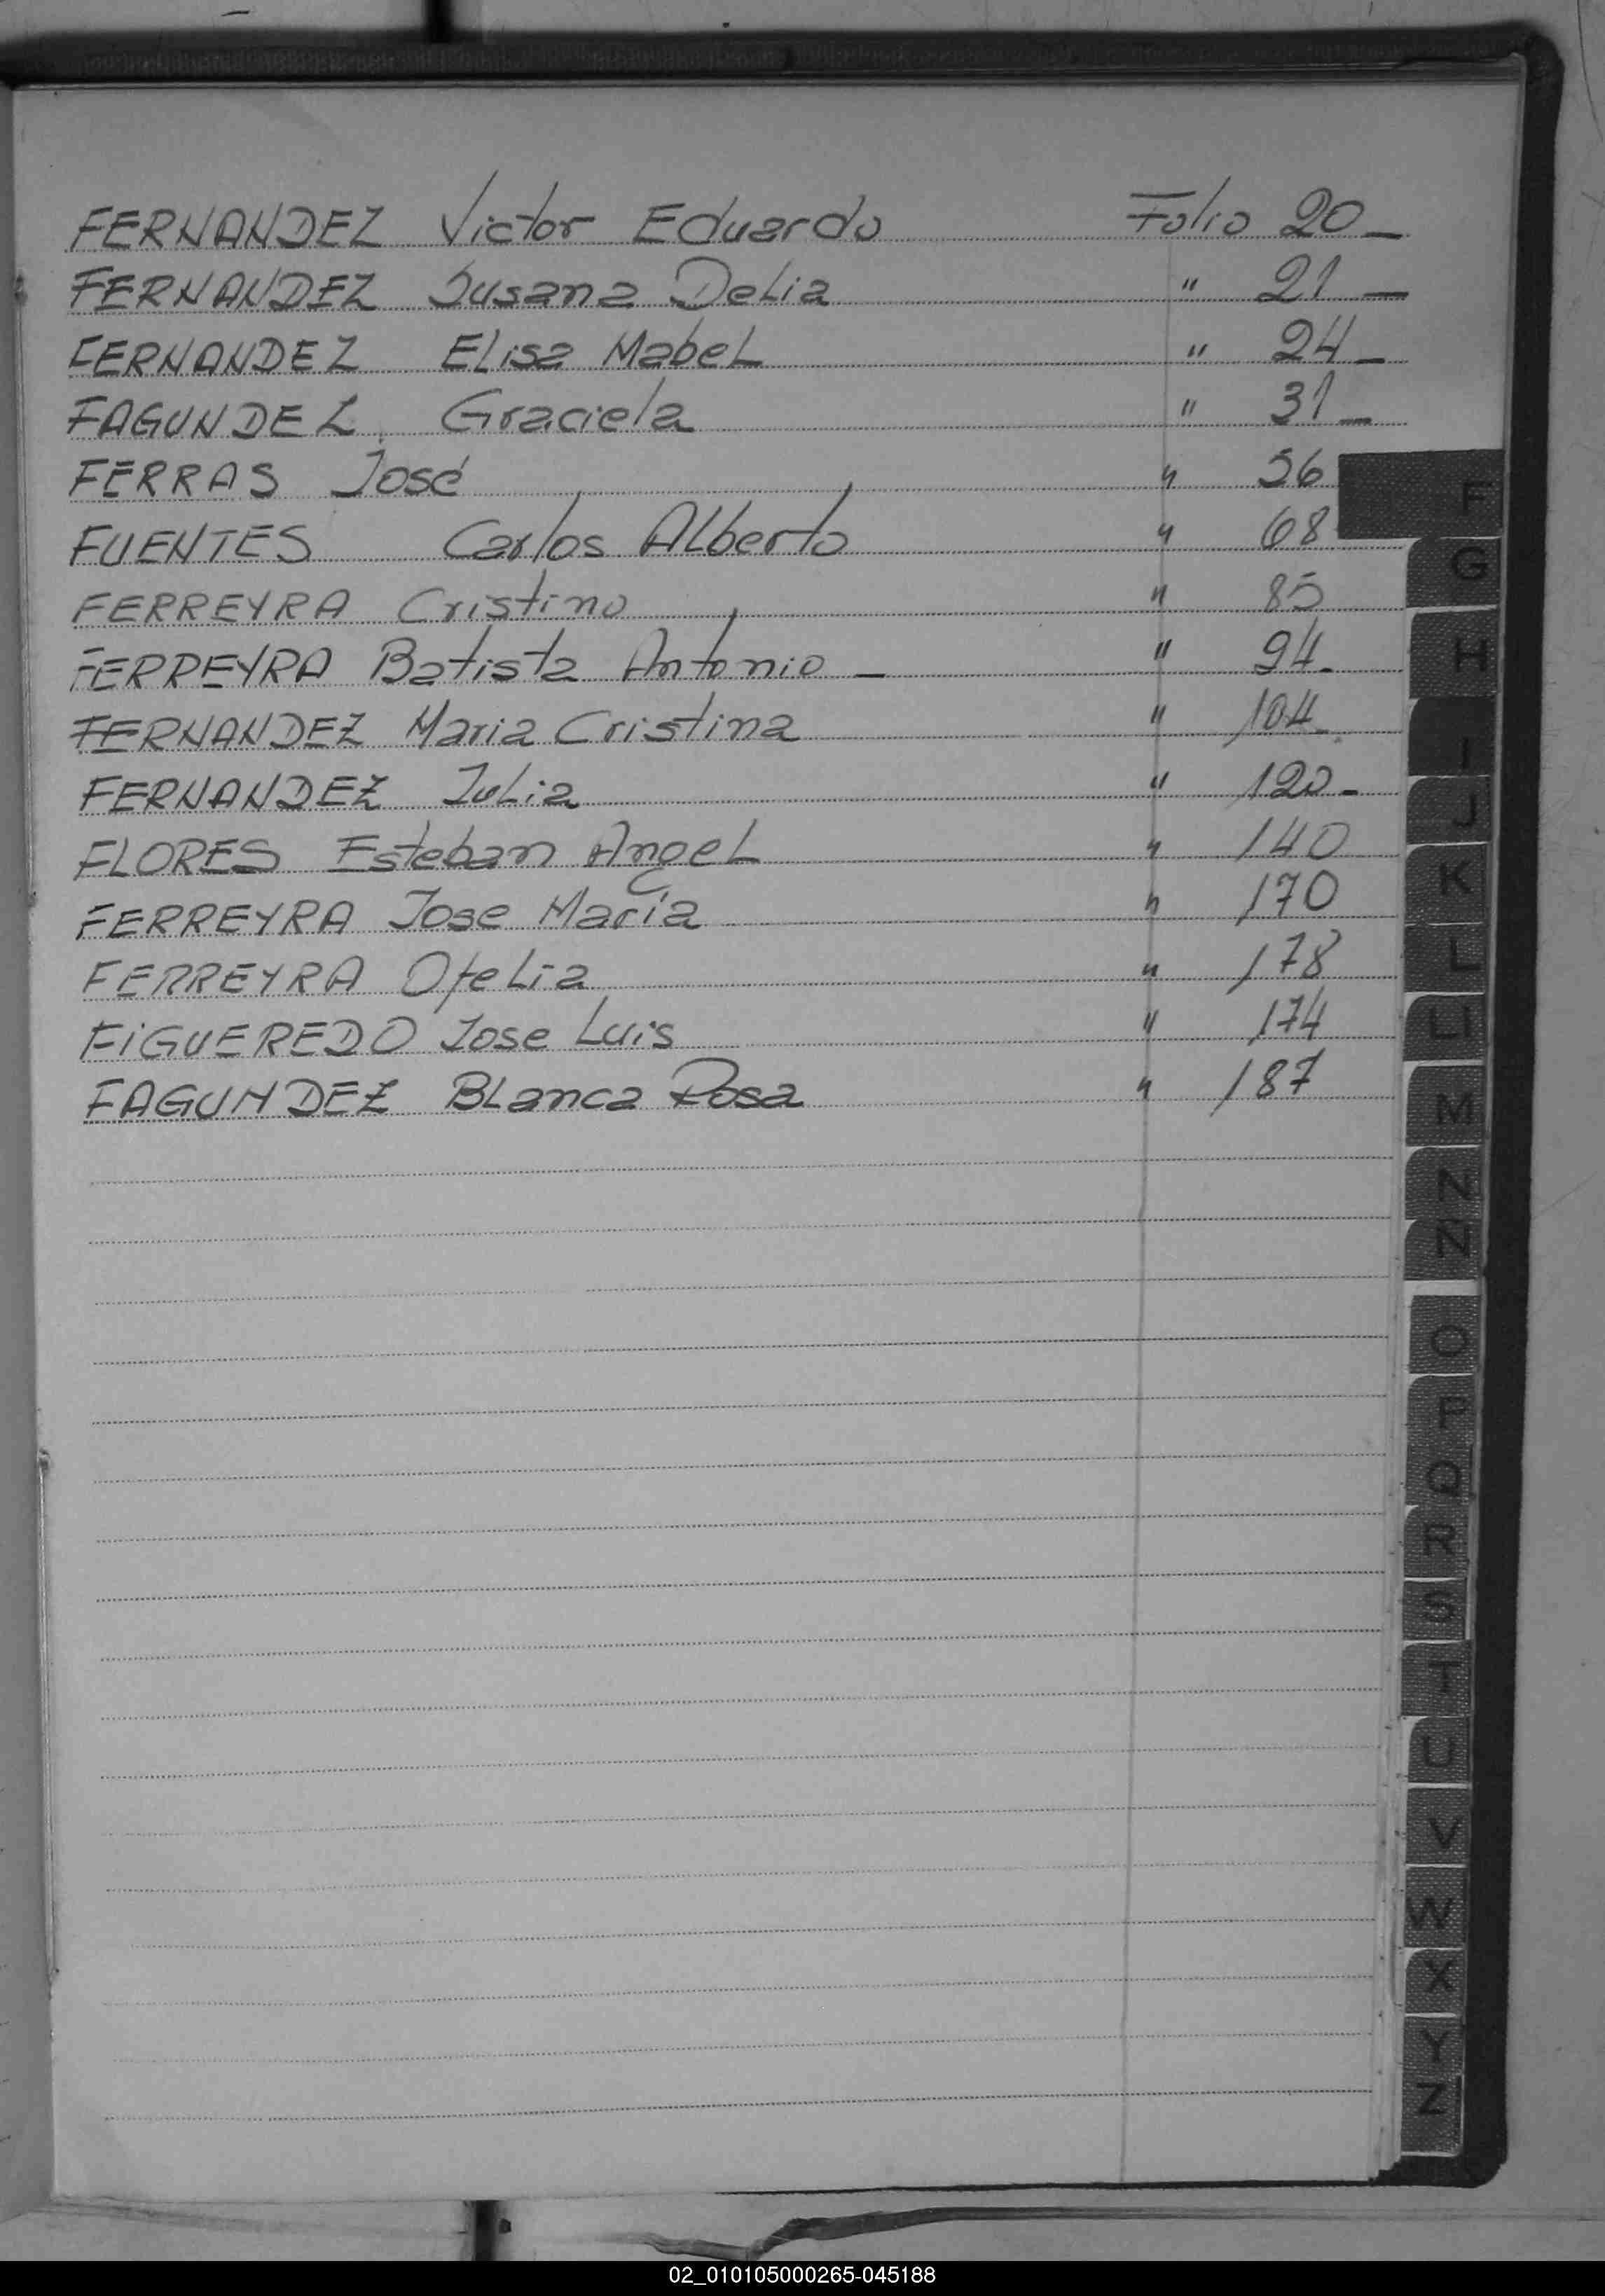 FERNANDEZ Victor Eduardo Folio 20 -
FERNANDEZ Susana Delia " 21 -
FERNANDEZ Elisa Mabel " 24 -
FAGUNDEZ Graciela " 31 -
FERRAS José " 56
FUENTES Carlos Alberto " 68
FERREYRA Cristino " 85
FERREYRA Batista Antonio - " 94 -
FERNANDEZ Maria Cristina " 104 -
FERNANDEZ Julia " 120 -
FLORES Esteban Angel " 140
FERREYRA Jose María " 170
FERREYRA Ofelia " 178
FIGUEREDO Jose Luis " 174
FAGUNDEZ Blanca Rosa " 187
F
G
H
I
J
K
L
LL
M
N
Ñ
O
P
Q
R
S
T
U
V
W
X
Y
Z
02_010105000265-045188